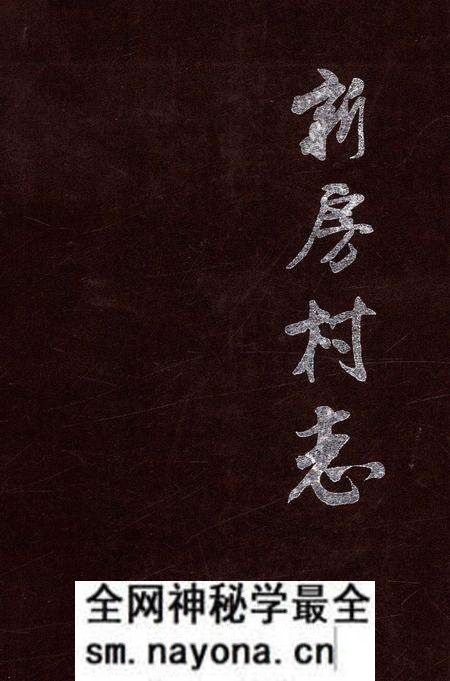 新房村志
全网神秘学最全
sm.nayona.cn